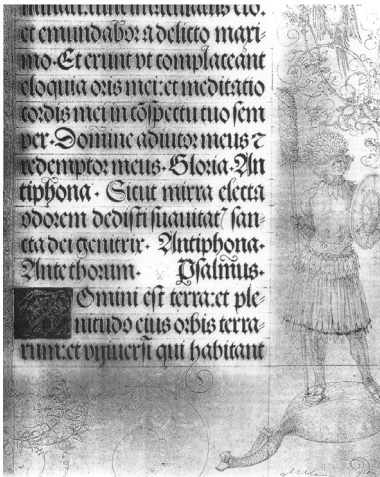 et emundabor a delicto maxi-
mo. Et erunt vt complaceant
eloquia oris mei: et meditatio
cordis mei in cōspectu tuo sem
per. Domine adiutor meus ⁊
redemptor meus. Gloria. An
tiphona. Sicut mirra electa
odorem dedisti suauitat᷒ san-
cta dei genitrix. Antiphona.
Ante thorum. Psalmus.
Domini est terra: et ple-
nitudo eius orbis terra-
rum: et vniuersi qui habitant